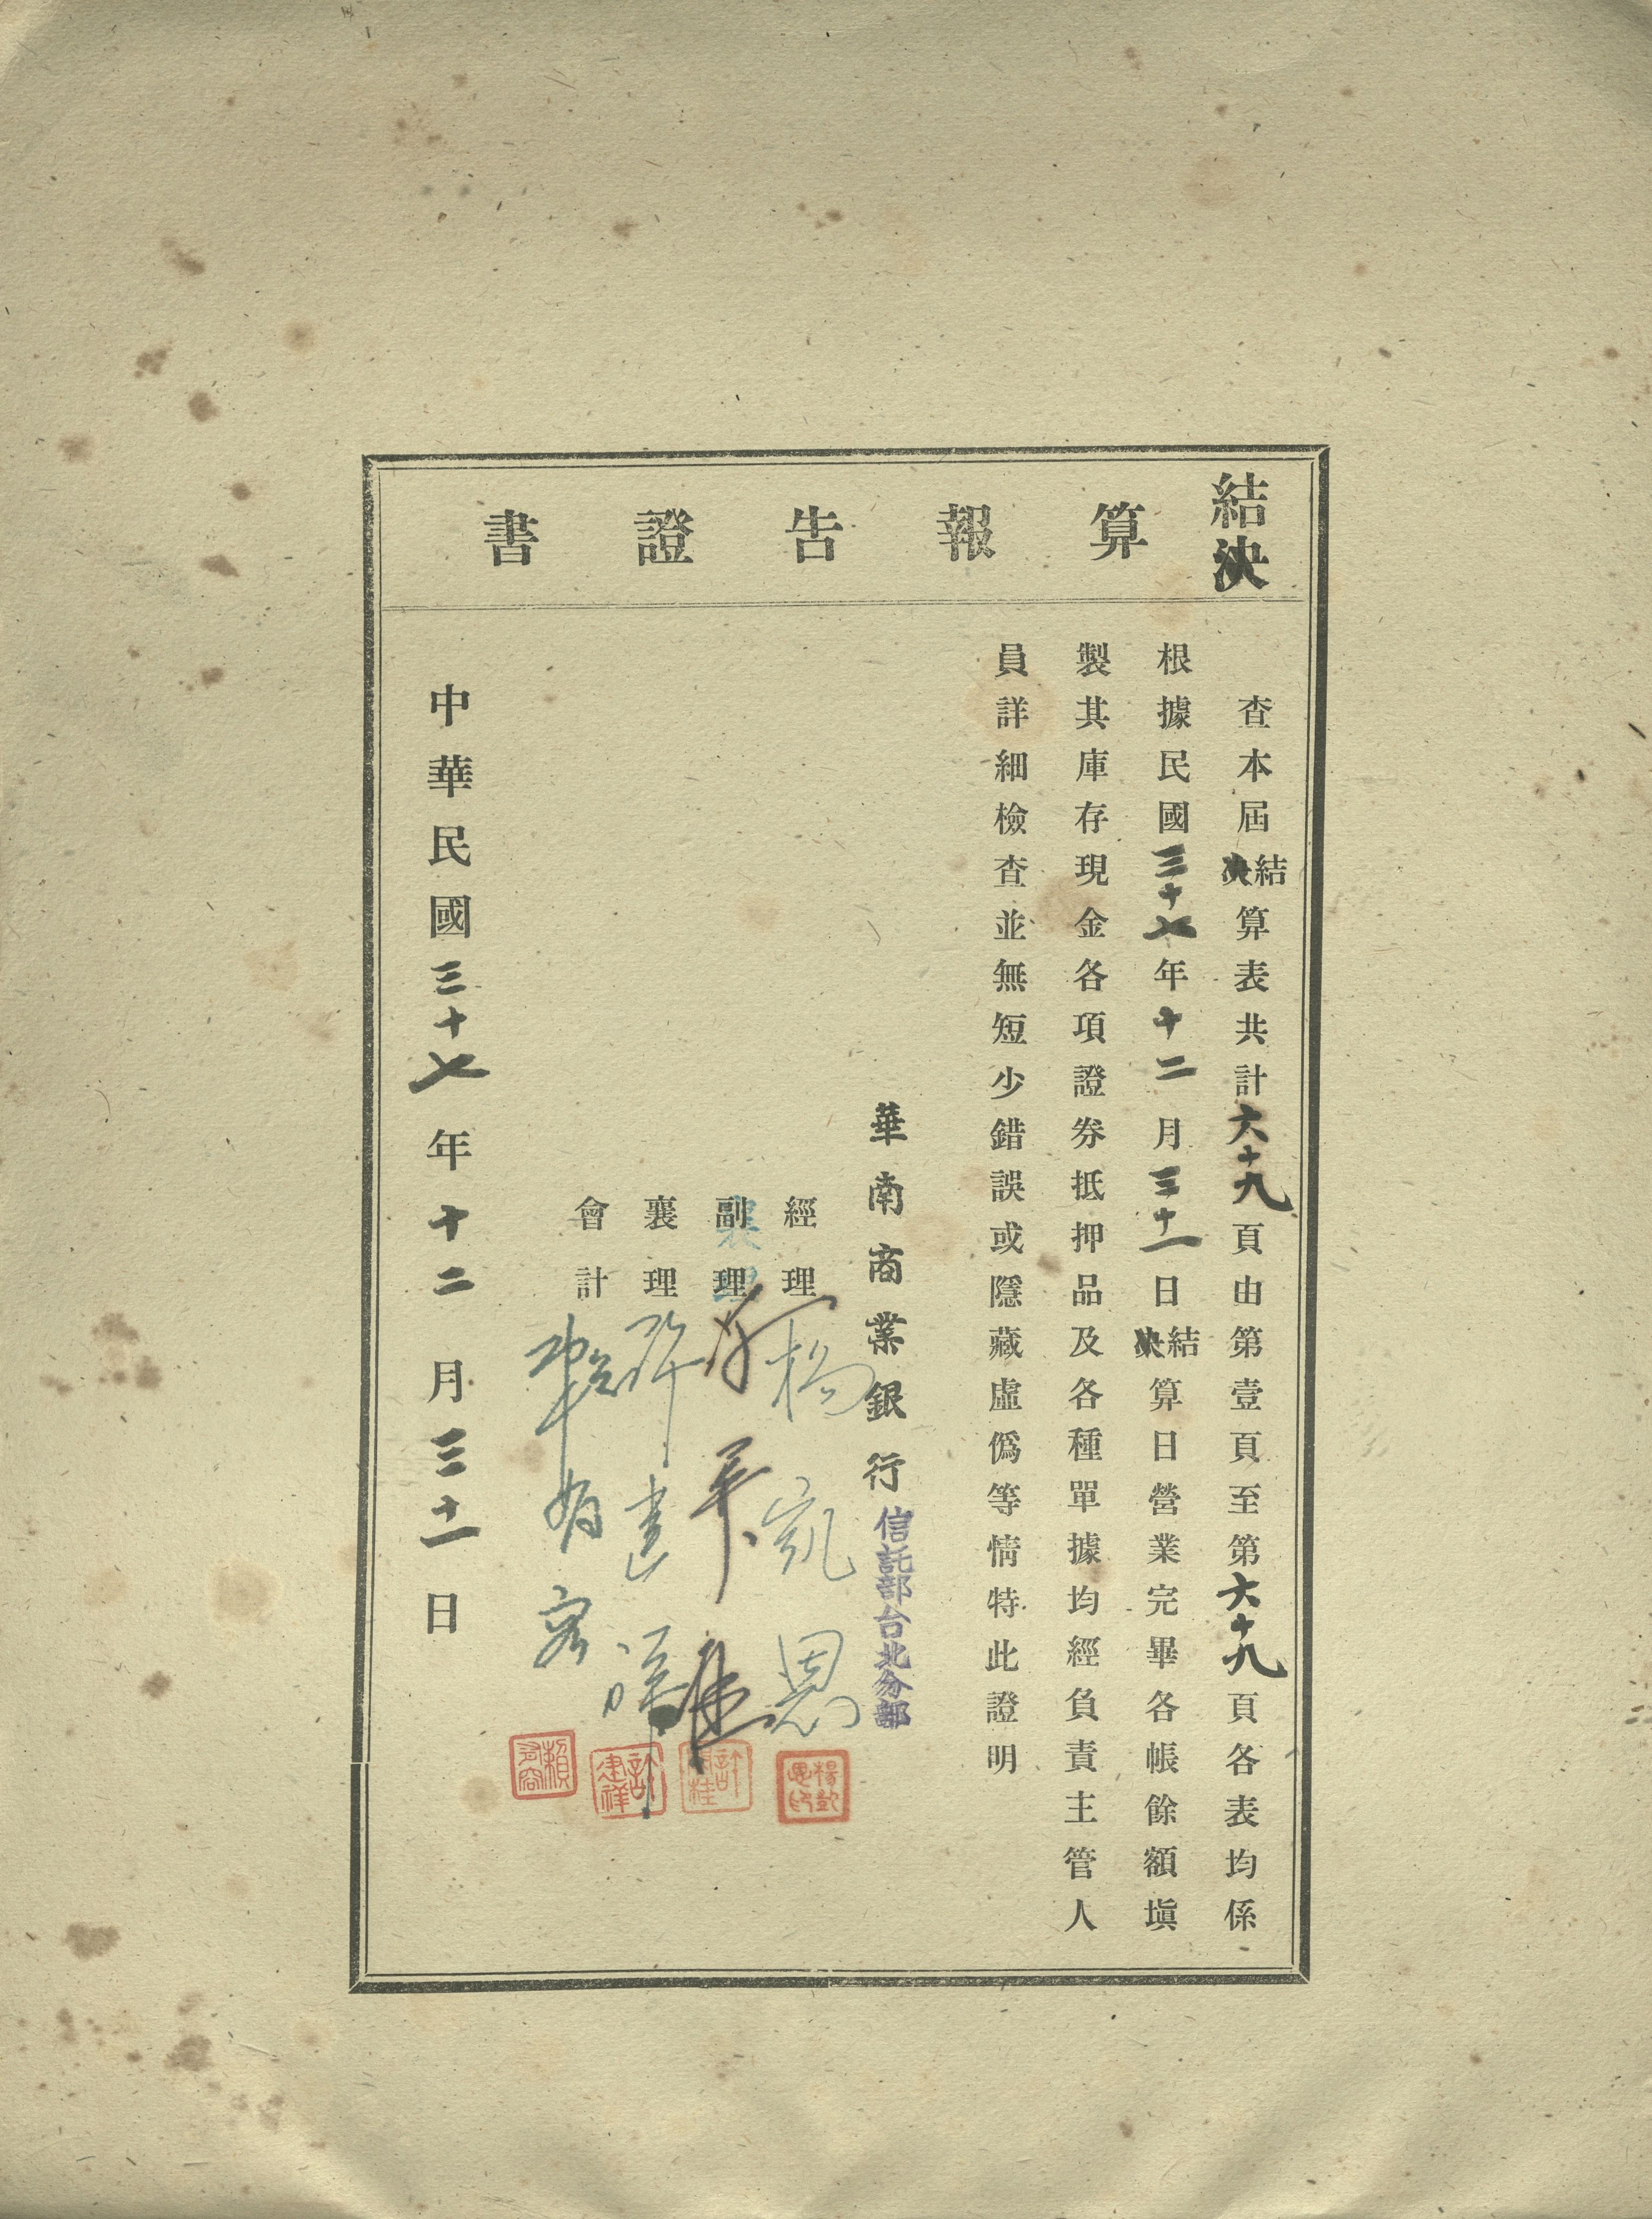 結決算報告證書
查本屆結決算表共計六十九頁由第壹頁至第六十九頁各表均係
根據民國三十七年十二月三十一日結決算日營業完畢各帳餘額塡
製其庫存現金各項證券抵押品及各種單據均經負責主管人
員詳細檢查並無短少錯誤或隱藏虛僞等情特此證明
華南商業銀行信託部台北分部
經理 楊凱恩 楊凱恩印
副理 襄理 許 桂
襄理 許建祥 許建祥
會計 賴 容 賴 容
中華民國三十七年十二月三十一日